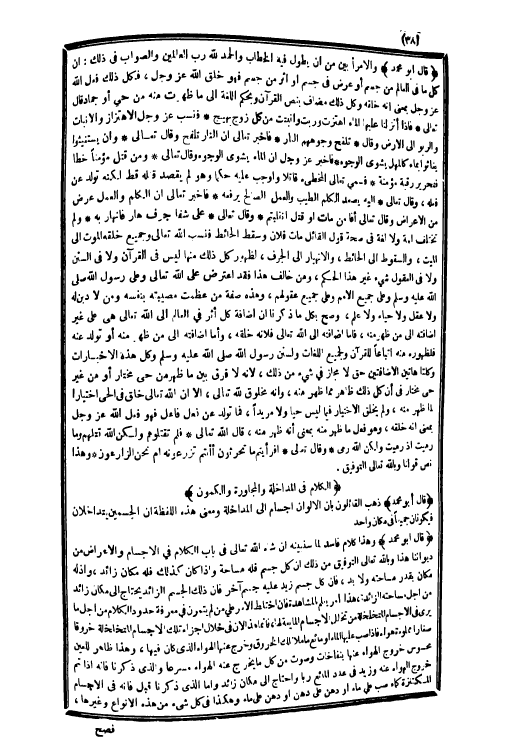 (٣٨)
﴿ قال ابو محمد ﴾ والامر أبين من ان يطول فيه الخطاب والحمد لله رب العالمين والصواب فى ذلك : ان
كل ما فى العالم من جسم أو عرض فى جسم او اثر من جسم فهو خلق الله عز وجل ، فكل ذلك فعل الله
عز وجل بمعنى انه خلقه وكل ذلك مضاف بنص القرآن وبحكم اللغة الى ما ظهرت منه من حي أو جماد قال
تعالى * فاذا أنزلنا عليها الماء اهتزت وربت وانبتت من كل زوج بهيج * فنسب عز وجل الاهتزاز والانبات
والربو الى الارض وقال * تلفح وجوههم النار * فاخبر تعالى ان النار تلفح وقال تعالى * وان يستغيثوا
يغاثوا بماء كالمهل يشوى الوجوه * فاخبر عز وجل ان الماء يشوى الوجوه وقال تعالى * ومن قتل مؤمناً خطأ
فتحرير رقبة مؤمنة * فسمى تعالى المخطىء قاتلا واوجب عليه حكما وهو لم يقصد قتله قط لكنه تولد عن
فعله ، وقال تعالى * اليه يصعد الكلم الطيب والعمل الصالح يرفعه * فاخبر تعالى ان الكلم والعمل عرض
من الاعراض وقال تعالى أفا من مات او قتل انقلبتم * وقال تعالى * على شفا جرف هار فانهار به * ولم
تختلف امة ولا لغة فى صحة قول القائل مات فلان وسقط الحائط فنسب الله تعالى وجميع خلقه الموت الى
الميت ، والسقوط الى الحائط ، والانهيار الى الجرف ، لظهور كل ذلك منها ليس فى القرآن ولا فى السنن
ولا فى العقول شيء غير هذا الحكم ، ومن خالف هذا فقد اعترض على الله تعالى وعلى رسول الله صلى
الله عليه وسلم وعلى جميع الامم وعلى جميع عقولهم ، وهذه صفة من عظمت مصيبته بنفسه ومن لا دين له
ولا عقل ولا حياء ولا علم ، وصح بكل ما ذكرنا ان اضافة كل أثر فى العالم الى الله تعالى هى على غير
اضافته الى من ظهر منه ، فاما اضافته الى الله تعالى فلانه خلقه ، وأما اضافته الى من ظهر منه أو تولد عنه
فلظهوره منه اتباعاً للقرآن ولجميع اللغات ولسنن رسول الله صلى الله عليه وسلم وكل هذه الاخبارات
وكلتا هاتين الاضافتين حق لا مجاز فى شيء من ذلك ، لانه لا فرق بين ما ظهر من حى مختار أو من غير
حى مختار فى أن كل ذلك ظاهر مما ظهر منه ، وانه مخلوق لله تعالى ، الا ان الله تعالى خلق فى الحى اختياراً
لما ظهر منه ، ولم يخلق الاختيار فيما ليس حيا ولا مريداً ، فما تولد عن فعل فاعل فهو فعل الله عز وجل
بمعنى انه خلقه ، وهو فعل ما ظهر منه بمعنى أنه ظهر منه ، قال الله تعالى * فلم تقتلوهم ولكن الله قتلهم وما
رميت اذ رميت ولكن الله رمى * وقال تعالى * افرأيتم ما تحرثون أأنتم تزرعونه ام نحن الزارعون * وهذا
نص قولنا وبالله تعالى التوفيق .
﴿ الكلام فى المداخلة والمجاورة والكمون ﴾
﴿ قال أبو محمد ﴾ ذهب القائلون بان الالوان اجسام الى المداخلة ومعنى هذه اللفظة ان الجسمين يتداخلان
فيكونان جميعاً فى مكان واحد
﴿ قال ابو محمد ﴾ وهذا كلام فاسد لما سنبينه ان شاء الله تعالى فى باب الكلام فى الاجسام والاعراض من
ديواننا هذا وبالله تعالى التوفيق من ذلك ان كل جسم فله مساحة واذا كان كذلك فله مكان زائد ، واذ له
مكان بقدر مساحته ولا بد ، فان كل جسم زيد عليه جسم آخر فان ذلك الجسم الزائد يحتاج الى مكان زائد
من اجل مساحته الزائدة ، هذا امر يعلم بالمشاهدة فان اختلط الامر على من لم يتمرن فى معرفة حدود الكلام من اجل ما
يرى فى الاجسام المتخلخلة من تخلل الاجسام المايعة لها ، فانما هذا لان فى خلال اجزاء تلك الاجسام المتخلخلة خروقا
صغارا مملوءة هواء فاذا صب عليها الماء او مائع ما ملا تلك الخروق وخرج عنها الهواء الذى كان فيها ، وهذا ظاهر للعين
محسوس خروج الهواء عنها بنفاخات وصوت من كل ما يخرج عنه الهواء مسرعا والذى ذكرنا فانه اذا تم
خروج الهواء عنه وزيد فى عدد المائع ربا واحتاج الى مكان زائد واما الذى ذكرنا قبل فانه فى الاجسام
المكتنزة كماء صب على ماء او دهن على دهن او دهن على ماء وهكذا فى كل شىء من هذه الانواع وغيرها ،
فصح